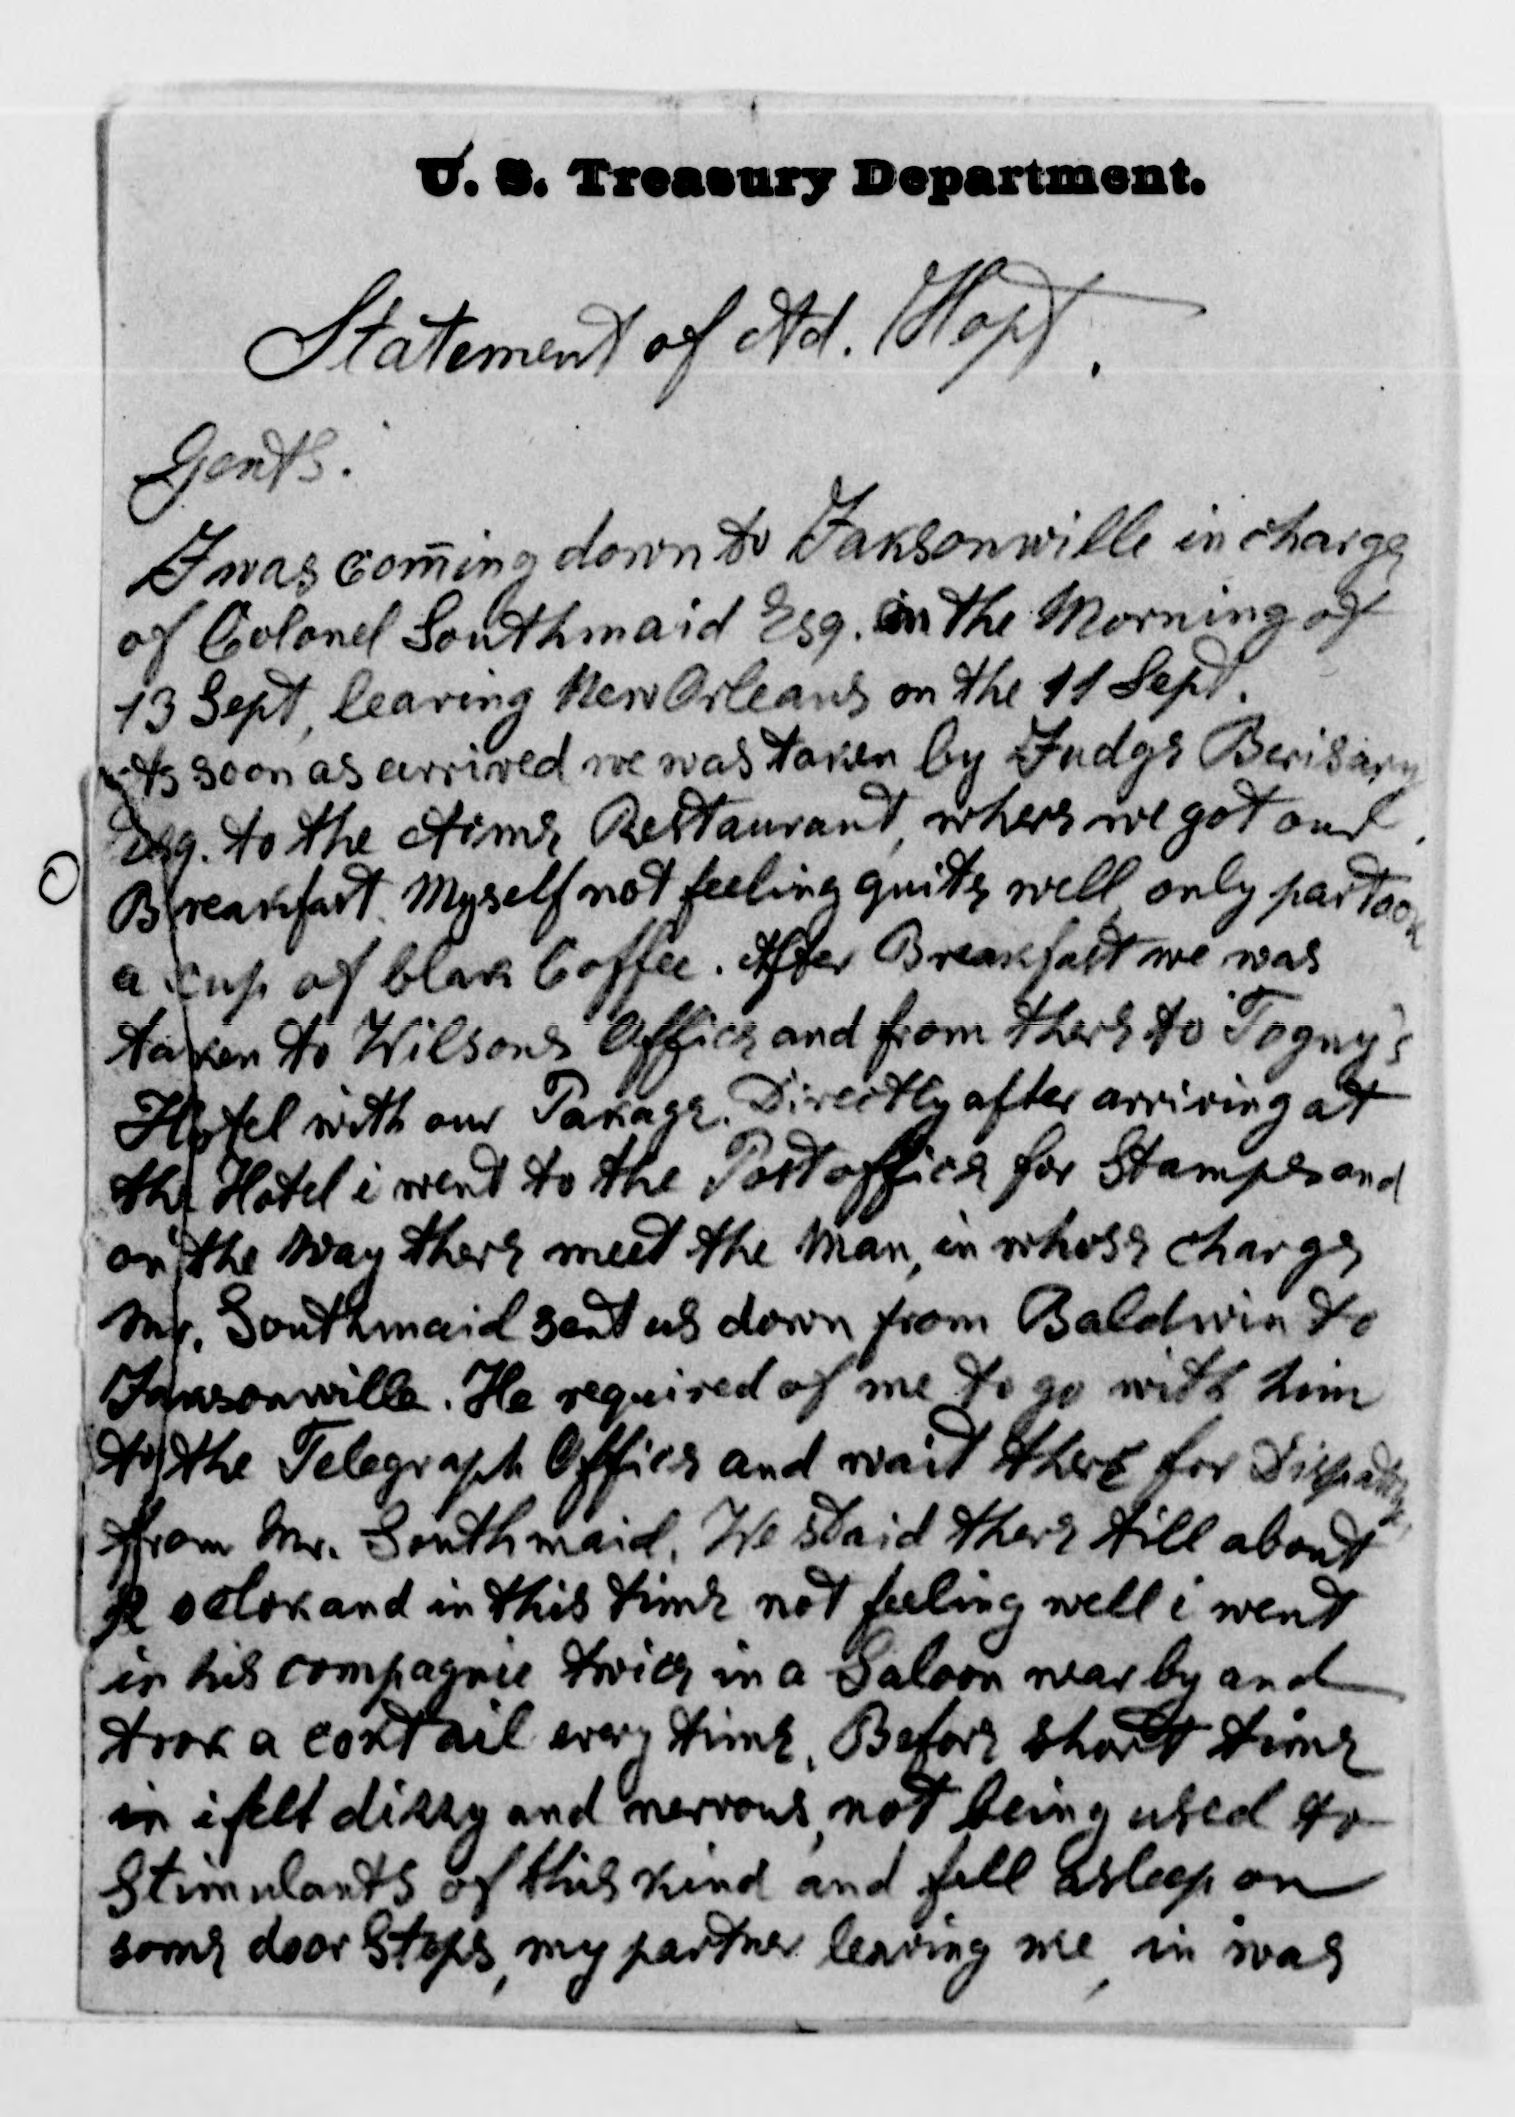 U. S. Treasury Department.
Statement of Ad. Hopt.
Gents.
I was com̄ing down to Jaksonwille in charge
of Colonel Southmaid Esq. in the Morning of
13 Sept, leaving New Orleans on the 11 Sept.
As soon as arrived we was taken by Judge
Esq. to the Acme Restaurant, where we got our
Breakfast. Myself not feeling quite well only partook
a cup of blak Coffee. After Breakfast we was
taken to Wilsons Office and from there to Togny's
Hotel with our Pakage. Directly after arriving at
the Hotel i went to the Postoffice for Stamps and
on the Way there meet the Man, in whose charge
Mr. Southmaid sent us down from Baldwin to
Jaksonwille. He required of me to go with him
to the Telegraph Office and wait there for
from Mr. Southmaid. We staid there till about
oclok and in this time not feeling well i went
in his compagnie twice in a Saloon near by and
trok a coktail every time. Before short time
in i felt dizzy and nervous, not being used to
Stimulants of this kind and fell asleep on
some door Steps, my partner leaving me, in was